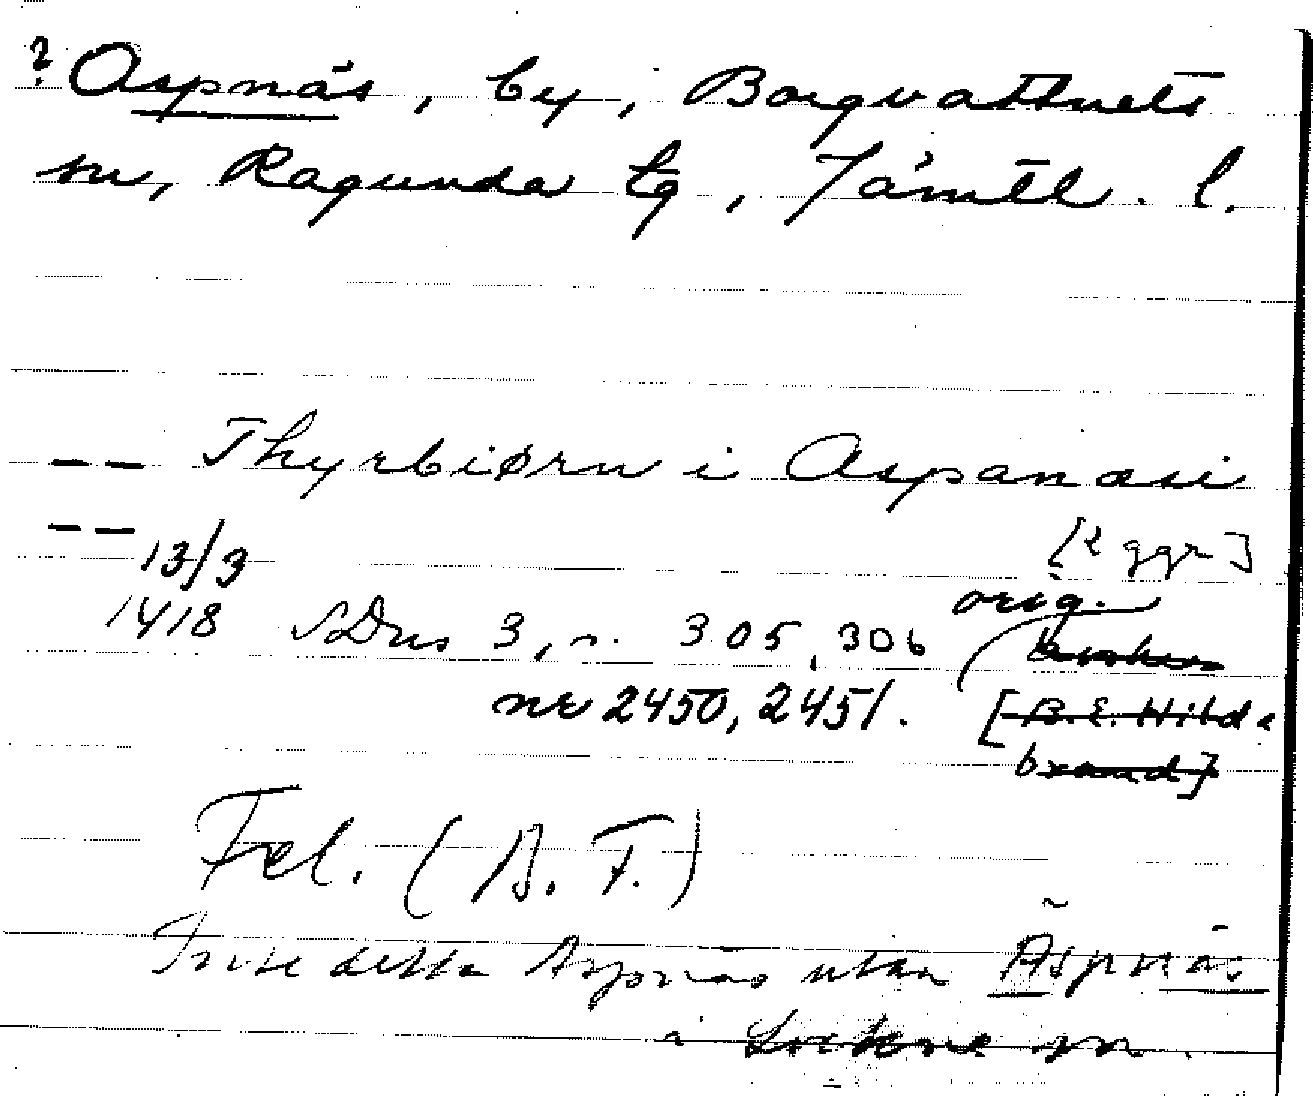 ? Aspnäs, by, Borgvattnets
sn, Ragunda tg, Jämtl. l.
-- Thyrbiørn i Aspanæsi
-- [2 ggr]
13/3
1418 SDns 3, s. 305, 306 orig.
nr 2450, 2451. [B. E. Hilde
brand]
Fel. (B. F.)
Inte detta Aspnäs utan Äspnäs
i Lockne sn.